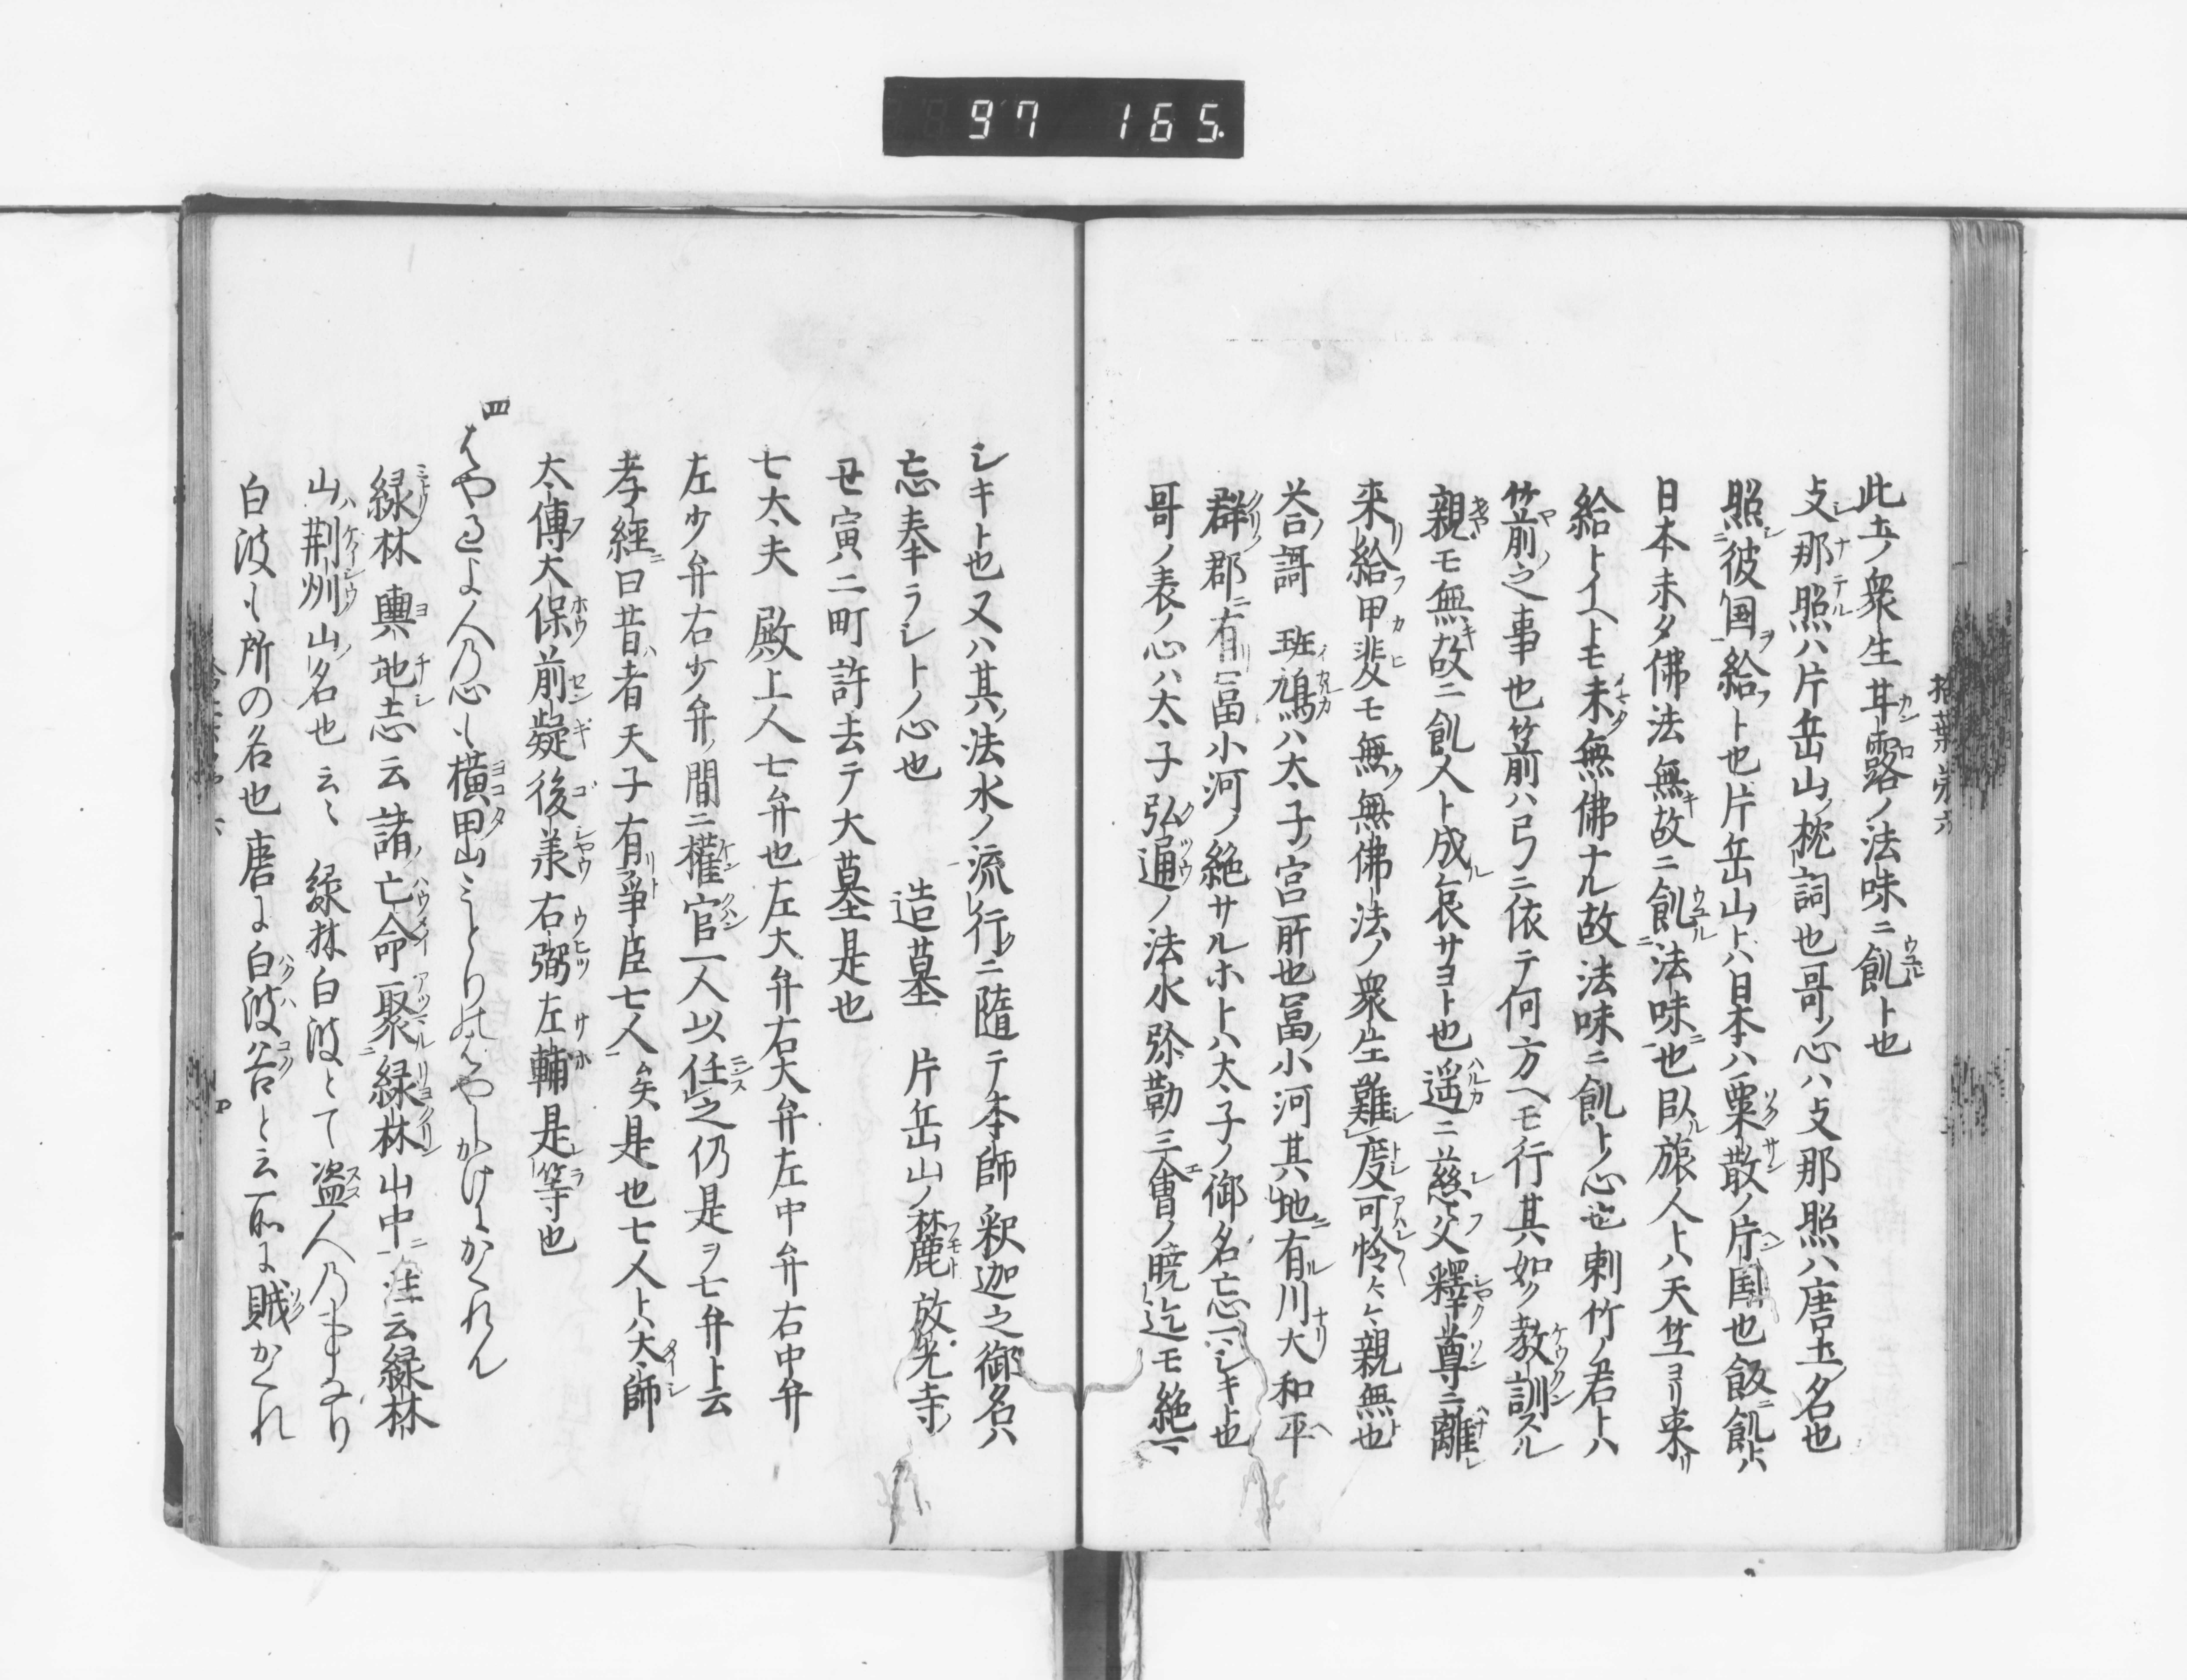 97 165.
拾葉第六
此土ノ衆生甘露ノ法味ニ飢ト也
攴那照ハ片岳山ノ枕詞也哥ノ心ハ攴那照ハ唐土ノ名也
照彼国給ト也片岳山トハ日本ハ粟散ノ片国也飯飢トハ
日本未タ佛法無故ニ飢法味也臥旅人トハ天竺ヨリ来
給トイヘトモ未無佛ナル故法味ニ飢ト心也刺竹ノ君トハ
箭之事也箭ハ弓ニ依テ何方ヘモ行其如ク教訓スル
親モ無故ニ飢人ト成哀サヨト也遥ニ慈父釋尊ニ離
来給甲斐モ無無佛法ノ衆生難度可怜々々親無也
荅謌 班鳩ハ太子ノ宮所也冨小河其地有川大和平
群郡ニ有冨小河ノ絶サルホトハ太子ノ御名忘シキト也
哥ノ表ノ心ハ太子弘通ノ法水弥勒三會ノ暁迄モ絶
シキト也又ハ其法水ノ流行ニ随テ本師釈迦之御名ハ
忘奉ラシトノ心也 造墓 片岳山ノ麓放光寺ノ
丑寅ハ二町許去テ大墓是也
七大夫 殿上人七弁也左大弁右大弁左中弁右中弁
左少弁右少弁ノ間ニ權官一人以任之仍是ヲ七弁ト云
孝經曰昔者天子有爭臣七人矣是也七人トハ大師
太傅大保前疑後羕右弼左輔是等也
四
はや過よ人乃心も横田山みとりのはやしかけにかくれん
緑林 輿地志云諸亡命聚緑林山中注云緑林
山ハ荆州ノ山名也云〻 緑林白波とて盗人乃事なり
白波も所の名也唐に白波谷と云所に賊かくれ